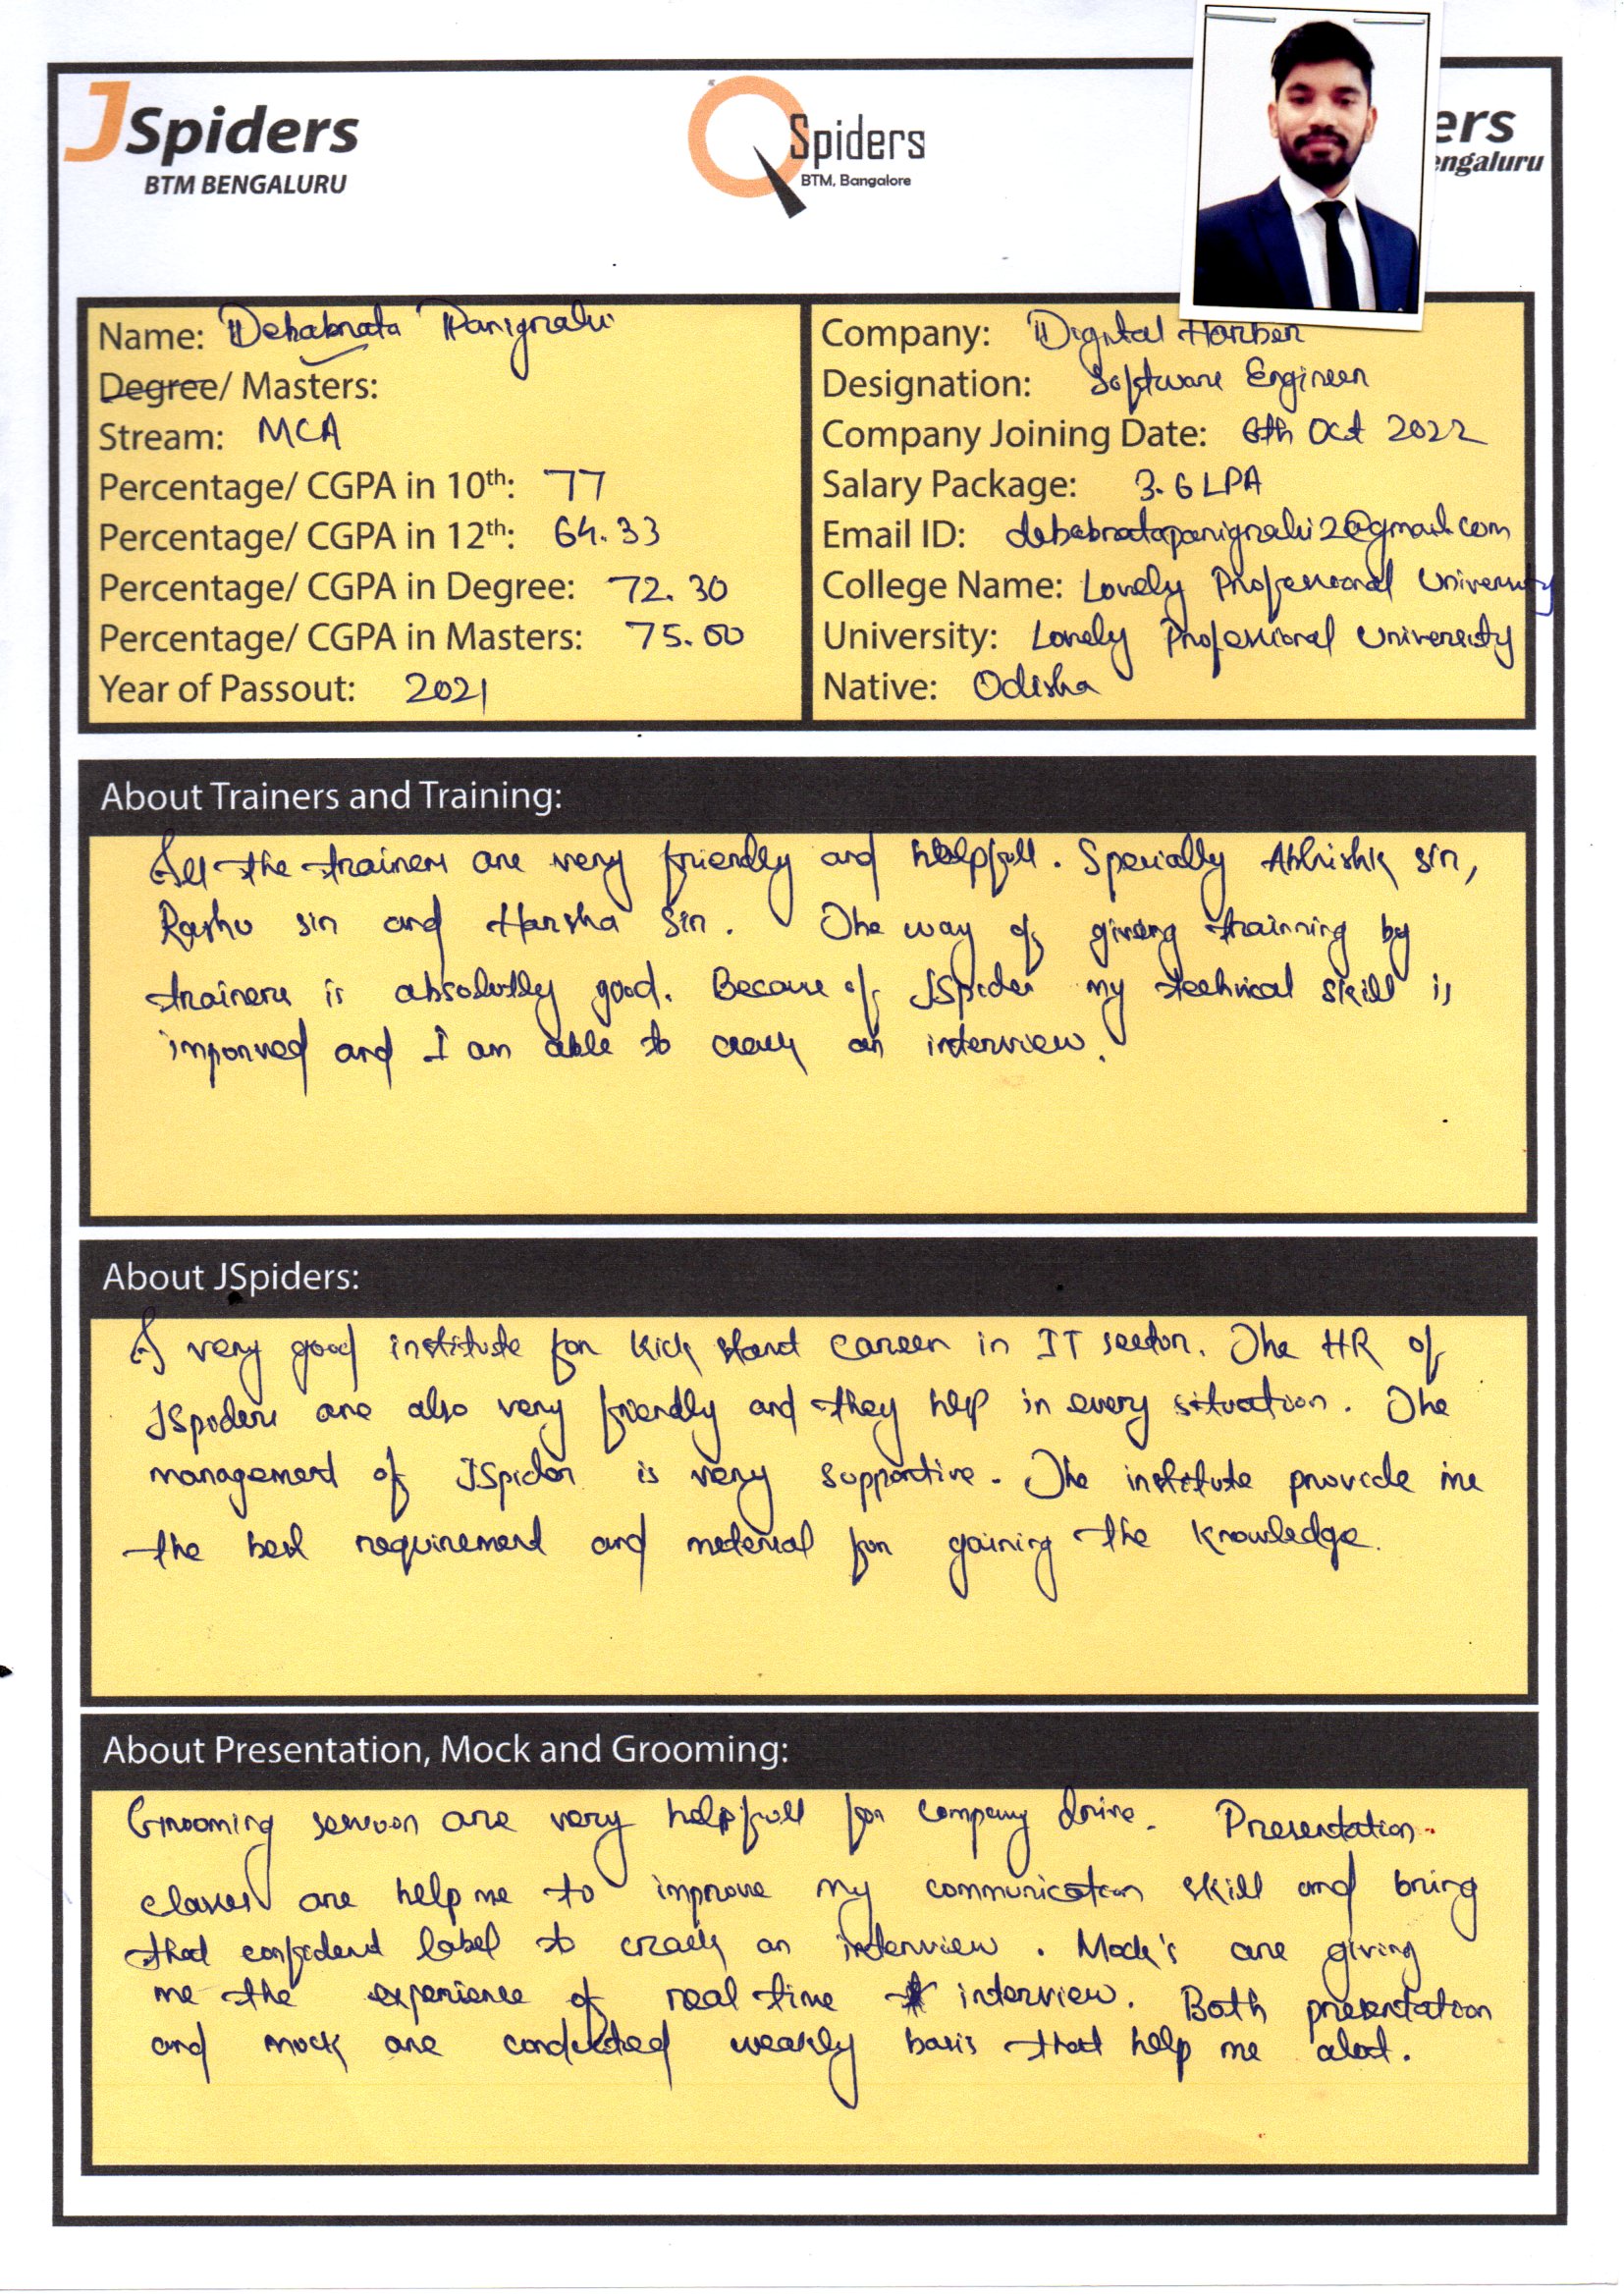 JSpiders
BTM BENGALURU
QSpiders
BTM, Bangalore
ers
engaluru
Name: Debabrata Panigrahi
Degree/ Masters:
Stream: MCA
Percentage/ CGPA in 10th: 77
Percentage/ CGPA in 12th: 64.33
Percentage/ CGPA in Degree: 72.30
Percentage/ CGPA in Masters: 75.00
Year of Passout: 2021
Company: Digital Harbor
Designation: Software Engineer
Company Joining Date: 6th Oct 2022
Salary Package: 3.6 LPA
Email ID: debabratapanigrahi2@gmail.com
College Name: Lovely Professional University
University: Lovely Professional University
Native: Odisha
About Trainers and Training:
All the trainers are very friendly and helpfull. Specially Abhishk sir,
sir and Harsha Sir. The way of giving trainning by
trainers is absolutly good. Because of JSpider my technical skill is
imporved and I am able to crack an interview.
About JSpiders:
A very good institute for kick start career in IT sector. The HR of
JSpiders are also very friendly and they help in every situation. The
management of JSpider is very supportive. The institute provide me
the best requirement and meterial for gaining the knowledge.
About Presentation, Mock and Grooming:
Grooming session are very helpfull for company drive. Presentation
classes are help me to improve my communication skill and bring
that confident label to crack an interview. Mock's are giving
me the experience of real time interview. Both presentation
and mock are conducted weakly basis that help me alot.